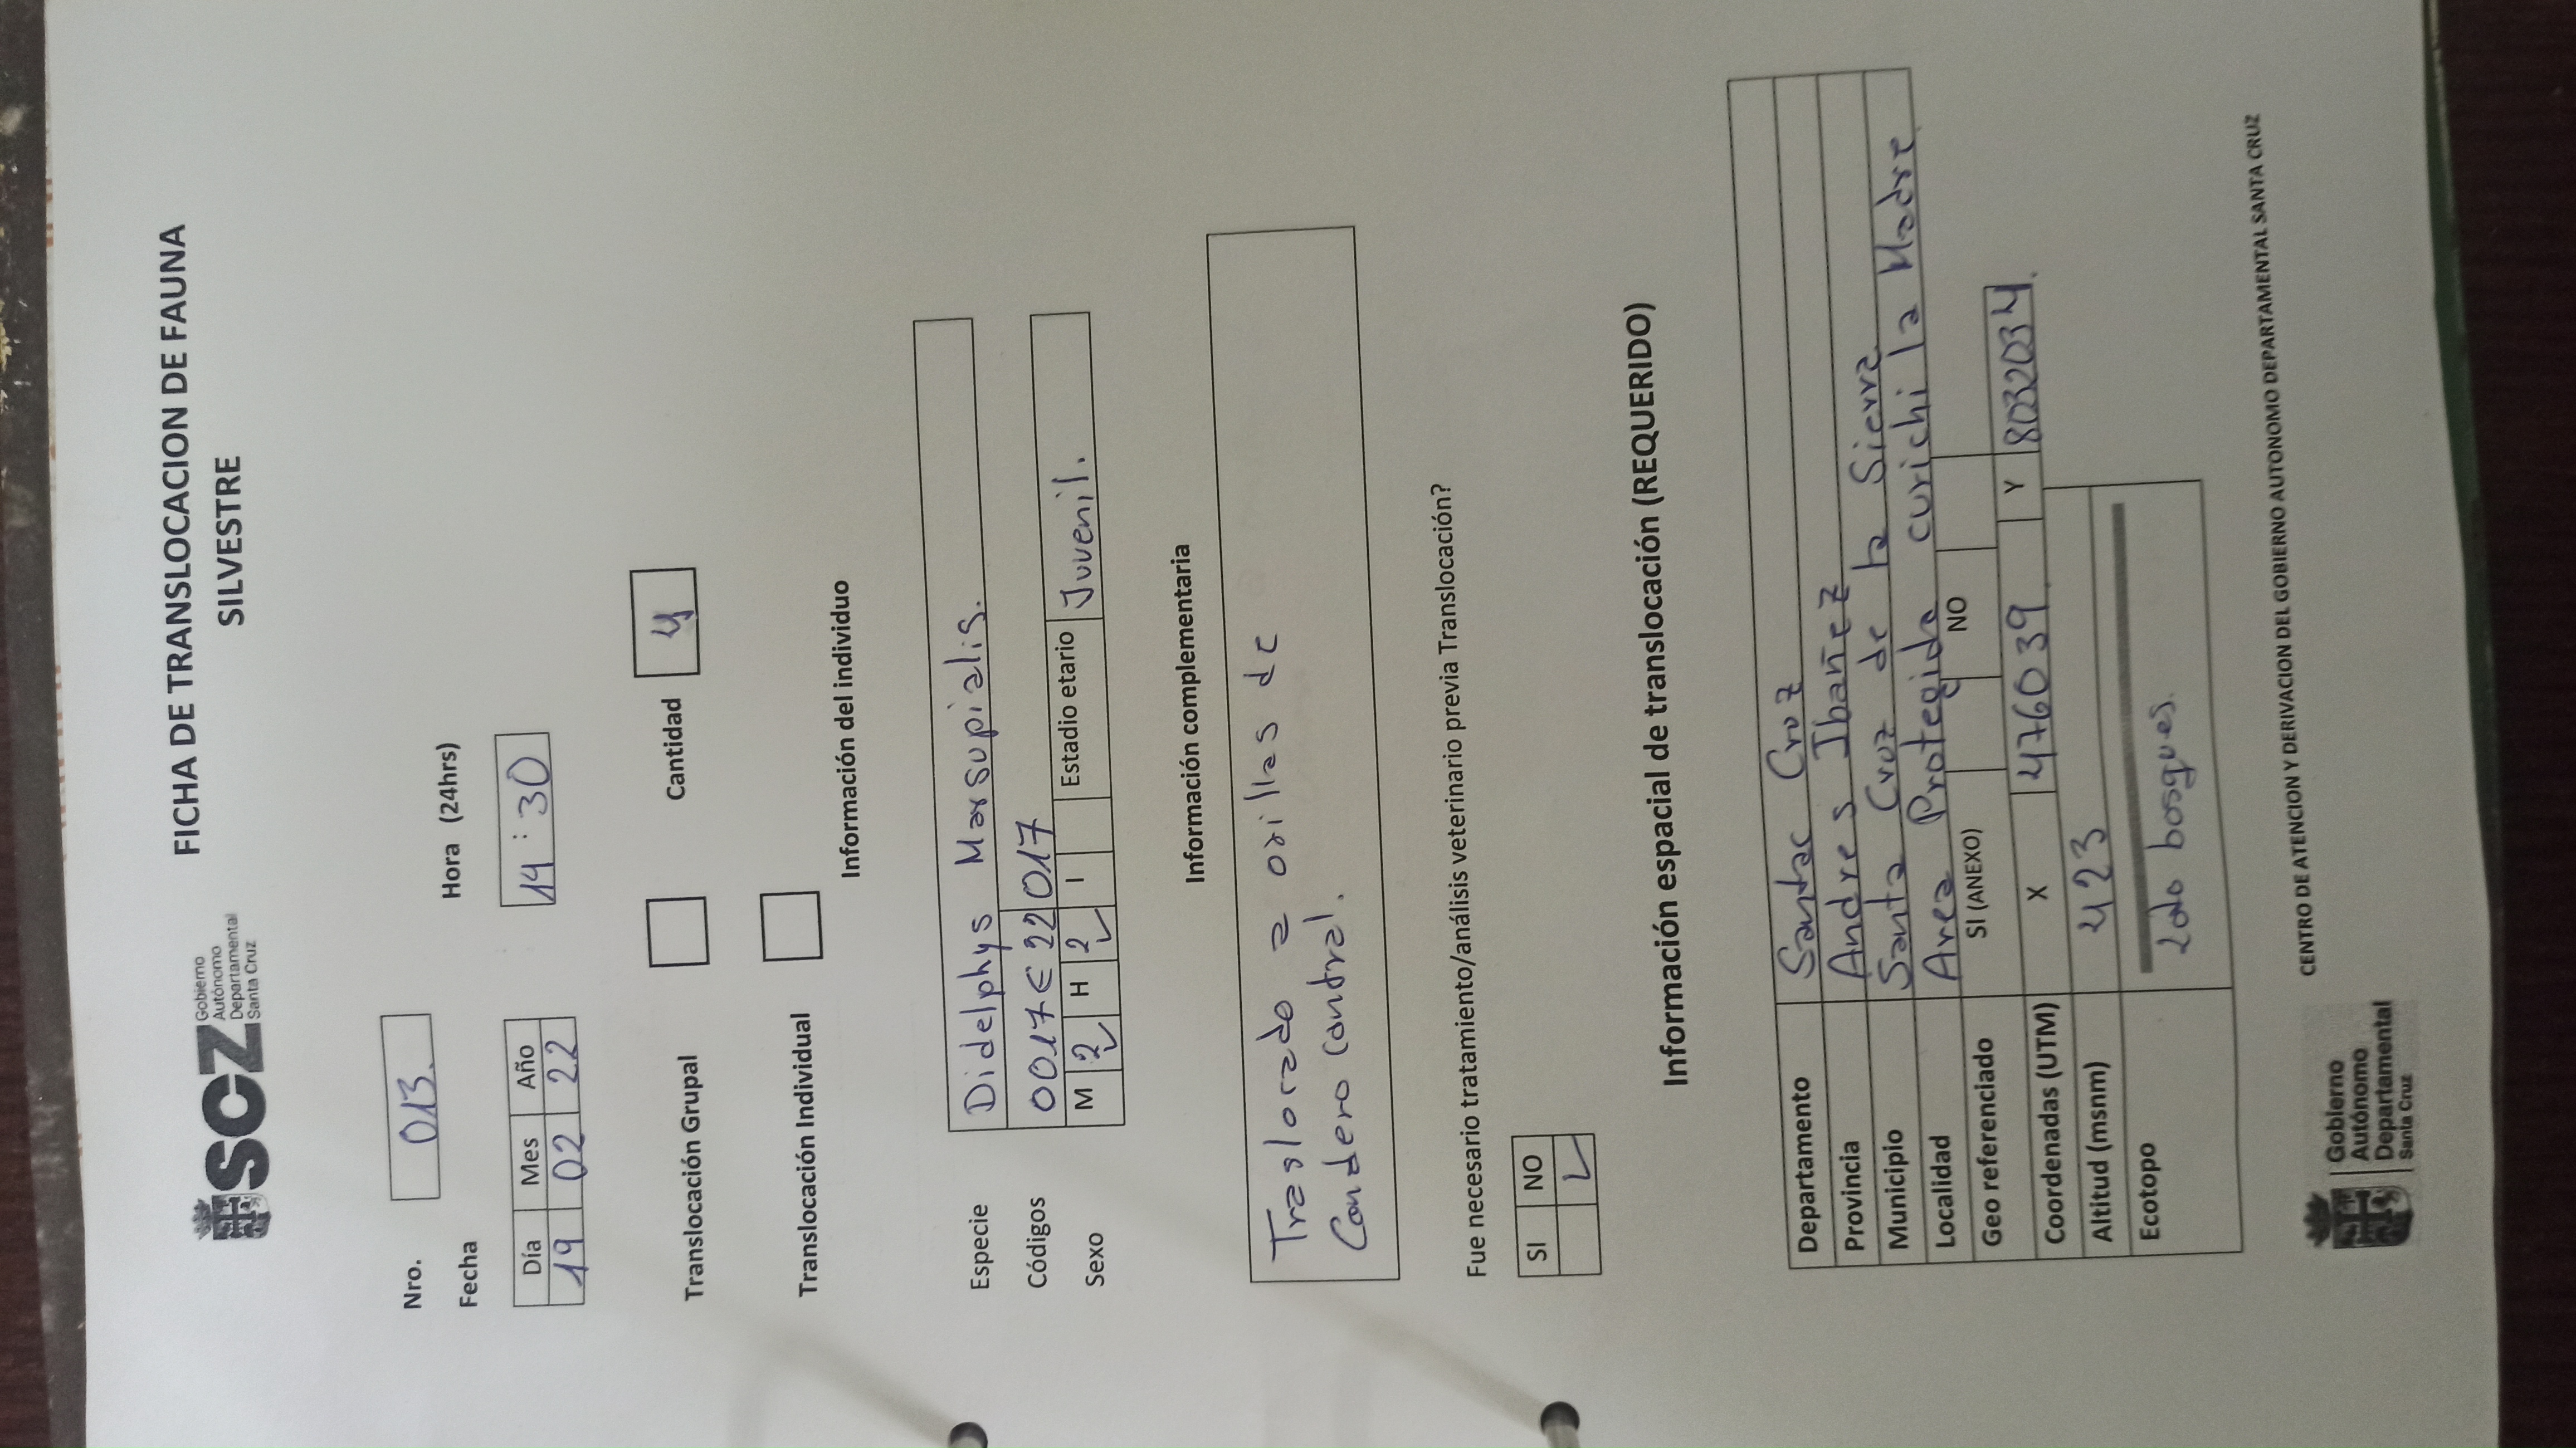 SCZ
Gobierno
Autónomo
Departamental
Santa Cruz
FICHA DE TRANSLOCACION DE FAUNA
SILVESTRE
Nro. 013.
Fecha
Hora (24hrs)
Día Mes Año
19 02 22
14 : 30
Translocación Grupal
Cantidad 4
Translocación Individual
Información del individuo
Especie Didelphys Marsupialis.
Códigos 0017E22 017
Sexo M 2 ✓ H 2 ✓ I Estadio etario Juvenil.
Información complementaria
Traslocado a orillas de
Condero Contral.
Fue necesario tratamiento/análisis veterinario previa Translocación?
SI NO
✓
Información espacial de translocación (REQUERIDO)
Departamento Santac Cruz
Provincia Andres Ibañez
Municipio Santa Cruz de la Sierra
Localidad Area Protegida curichi la Madre
Geo referenciado SI (ANEXO) NO
Coordenadas (UTM) X 476039 Y 8032034
Altitud (msnm) 423
Ecotopo
bosques.
CENTRO DE ATENCION Y DERIVACION DEL GOBIERNO AUTONOMO DEPARTAMENTAL SANTA CRUZ
Gobierno
Autónomo
Departamental
Santa Cruz